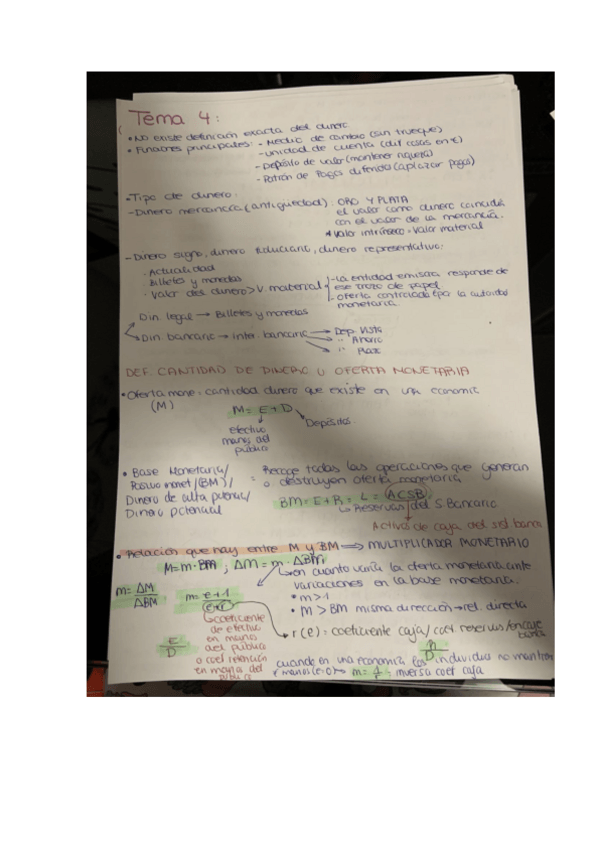 Tema 4:
• No existe definición exacta del dinero
• Funciones principales: - Medio de cambio (sin trueque)
- Unidad de cuenta (del cosas en €)
- Depósito de valor (mantener riqueza)
- Patrón de Pagos diferidos (aplazar pagos)
• Tipo de dinero:
- Dinero mercancía (antigüedad): ORO Y PLATA
el valor como dinero coincidía
con el valor de la mercancía.
* Valor intrínseco = Valor material
- Dinero signo, dinero fiduciario, dinero representativo:
· Actualidad
· Billetes y monedas
· Valor des dinero > V. material
- La entidad emisora responde de
ese trozo de papel
- oferta controlada por la autoridad
monetaria.
Din. legal → Billetes y monedas
Din. bancario → inter. bancario → Dep. Vista
→ " Ahorro
→ " Plazo
DEF. CANTIDAD DE DINERO U OFERTA MONETARIA
• Oferta mone = cantidad dinero que existe en una economía
(M)
M = E + D
efectivo
manos del
público
Depósitos.
• Base Monetaria/
Pasivo monet (BM)/
Dinero de alta potencia/
Dinero potencial
= Recoge todas las operaciones que generan
o destruyen oferta monetaria
BM = E + R = L = ACSB
↳ Reservas del S Bancario
Activos de caja del sist banc
• Relación que hay entre M y BM ⟹ MULTIPLICADOR MONETARIO
M = m · BM ; ΔM = m · ΔBM
↳ en cuanto varía la oferta monetaria ante
variaciones en la base monetaria.
m = ΔM / ΔBM
m = e+1 / e+r
• m > 1
• M > BM misma dirección → rel. directa
↳ coeficiente
de efectivo
en manos
del público
o coef retención
en manos del
público
E/D
r (e) = coeficiente caja/ coef reservas/ encaje
R/D
cuando en una economía los individuos no mantien
manos (e=0) → m = 1/r ; inversa coef caja